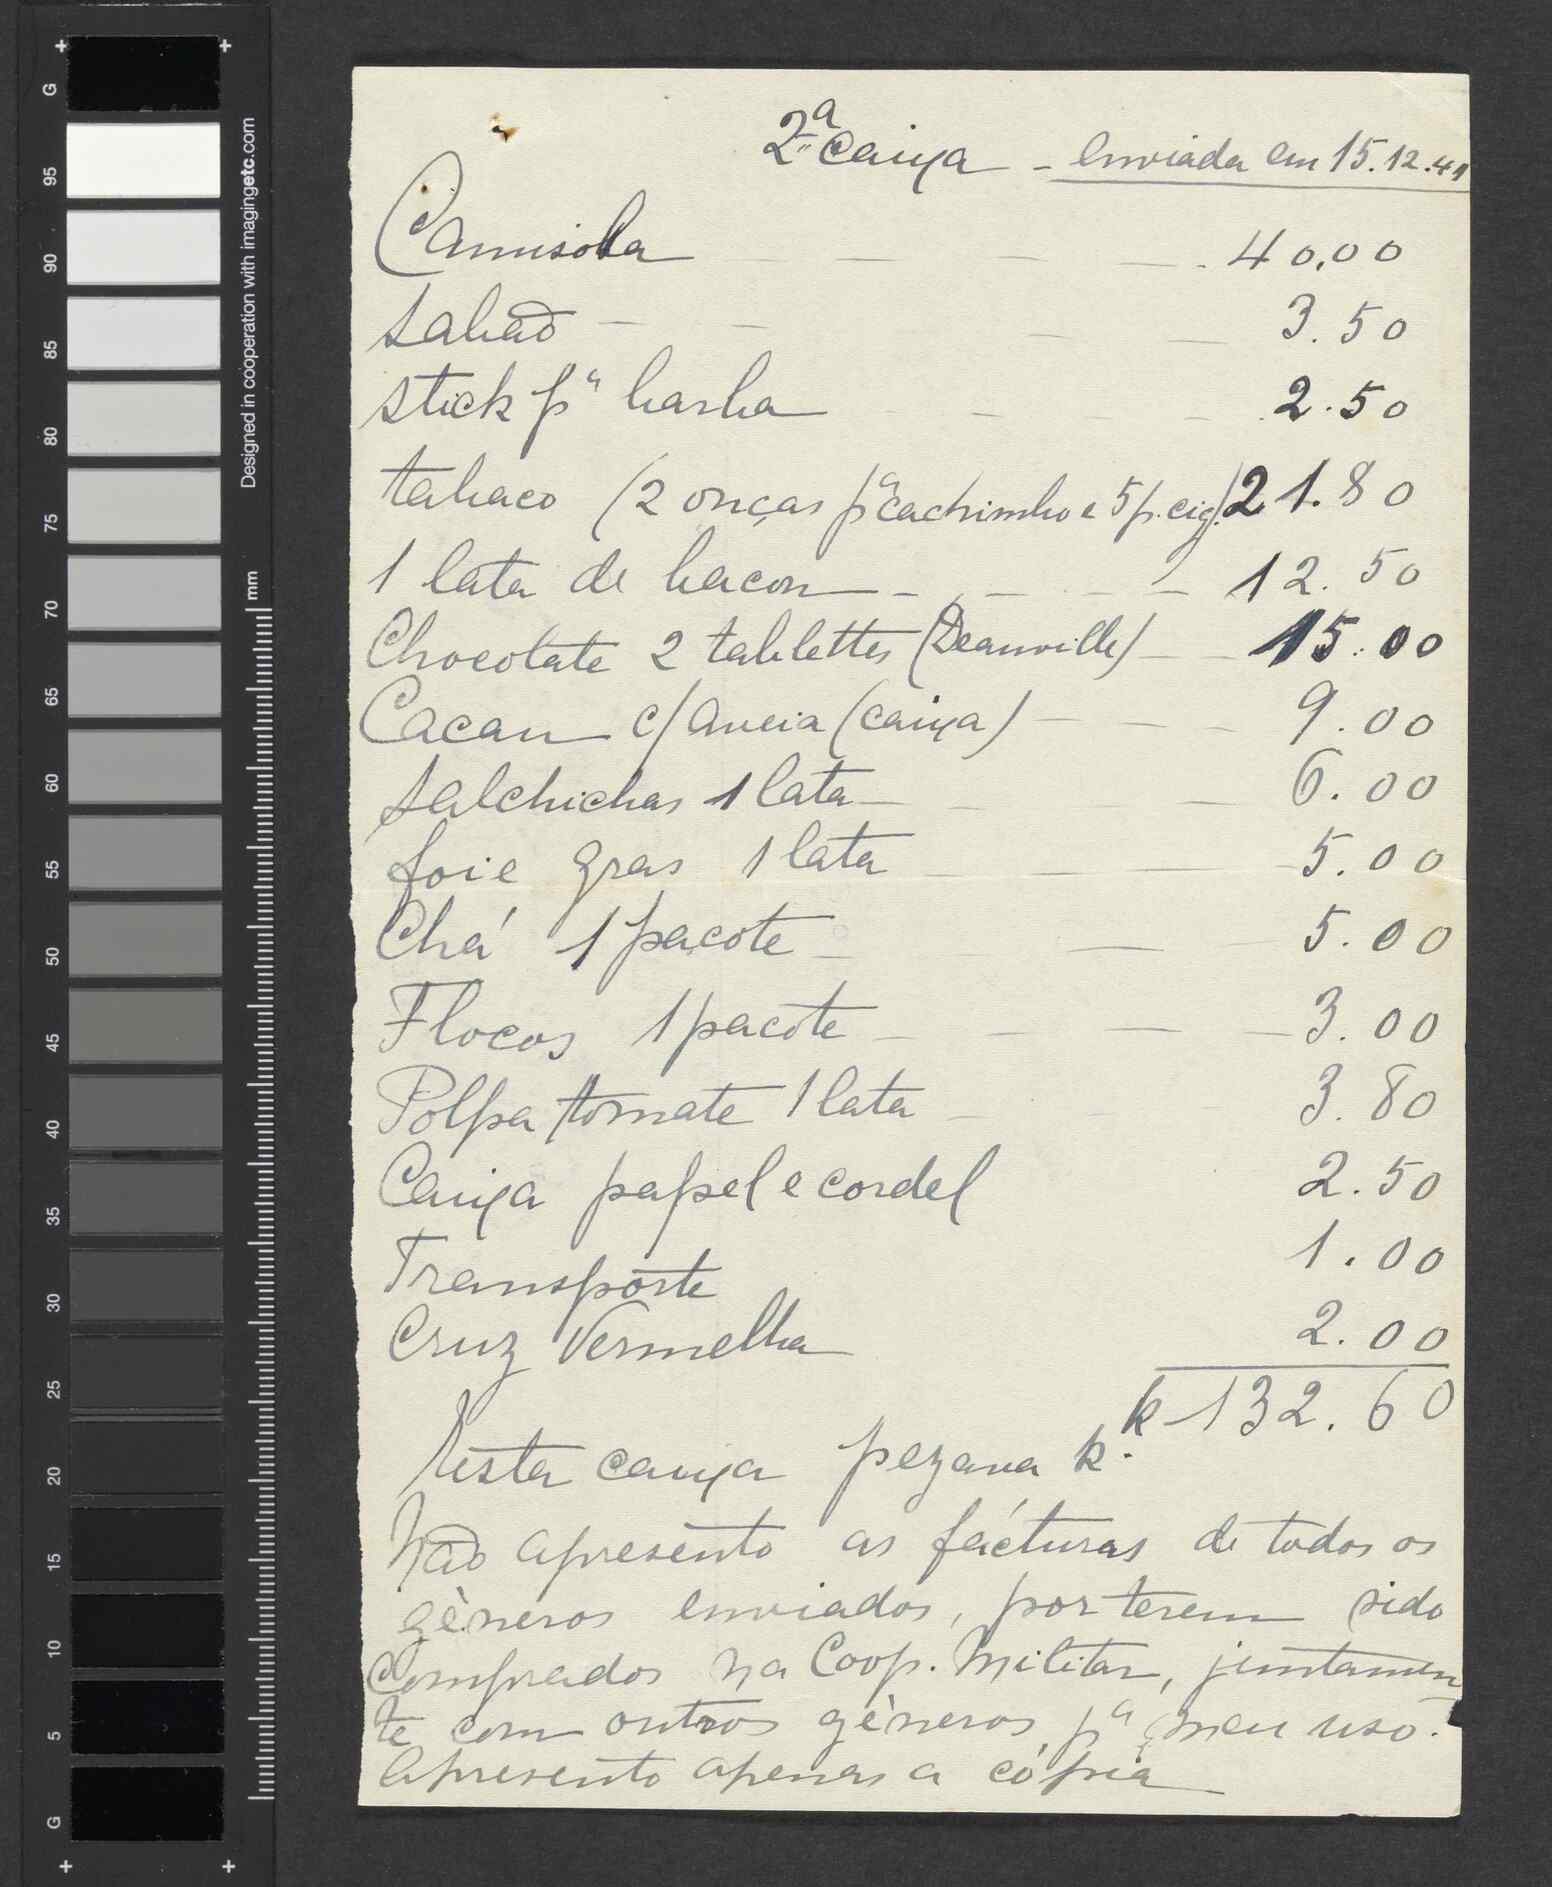 2ª caixa - enviada em 15.12.41
Camisola - - - - - 40.00
sabão - - - - 3.50
stick pª barba - - 2.50
tabaco (2 onças pª cachimbo e 5 p. cig.) 21.80
1 lata de bacon - - - - - 12.50
Chocolate 2 tablettes (Deauville) - - 15.00
Cacau c/ aveia (caixa) - - - 9.00
salchichas 1 lata - - - 6.00
foie gras 1 lata - - - - 5.00
Chá 1 pacote - - - 5.00
Flocos 1 pacote - - - - 3.00
Polpa tomate 1 lata - - 3.80
Caixa papel e cordel 2.50
Transporte 1.00
Cruz Vermelha 2.00
k 132.60
Nesta caixa pezava k.
Não apresento as fácturas de todos os
gèneros enviados, por terem sido
comprados na Coop. Militar, juntamen
te com outros gèneros pª meu uso.
Apresento apenas a cópia
G
95
90
85
80
75
70
65
60
55
50
45
40
35
30
25
20
15
10
5
G
Designed in cooperation with imagingetc.com
mm